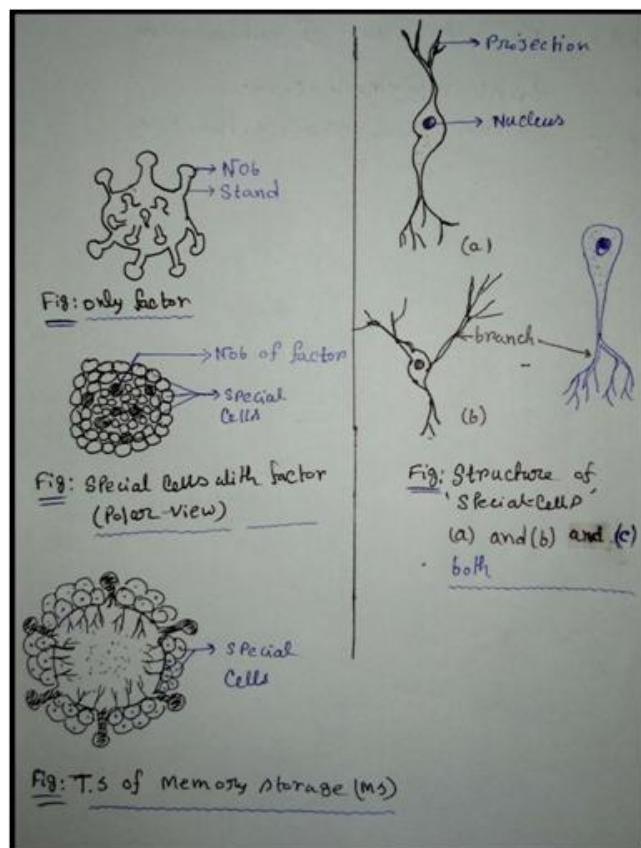 Nob
Stand
Fig: only factor
Nob of factor
Special
Cells
Fig: Special Cells with factor
(Polar-view)
Special
Cells
Fig: T.S of Memory Storage (MS)
Projection
Nucleus
(a)
branch
(b)
Fig: Structure of
'Special-Cells'
(a) and (b) and (c)
both